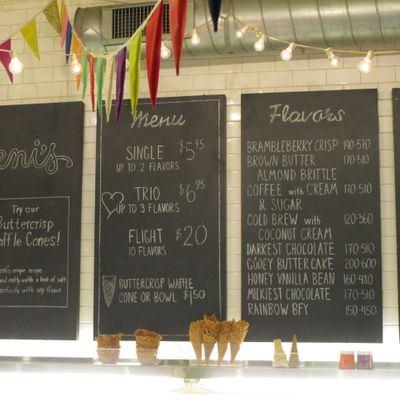 eni's
Try our
Buttercrisp
affle Cones!
Menu
SINGLE $5.95
UP TO 2 FLAVORS
TRIO $6.95
UP TO 3 FLAVORS
FLIGHT $20
10 FLAVORS
BUTTERCRISP WAFFLE
CONE OR BOWL $1.50
Flavors
BRAMBLEBERRY CRISP 190-570
BROWN BUTTER 170-510
ALMOND BRITTLE
COFFEE with CREAM 170-510
& SUGAR
COLD BREW with 120-360
COCONUT CREAM
DARKEST CHOCOLATE 170-510
GOOEY BUTTER CAKE 200-600
HONEY VANILLA BEAN 160-480
MILKIEST CHOCOLATE 170-510
RAINBOW BFY 150-450